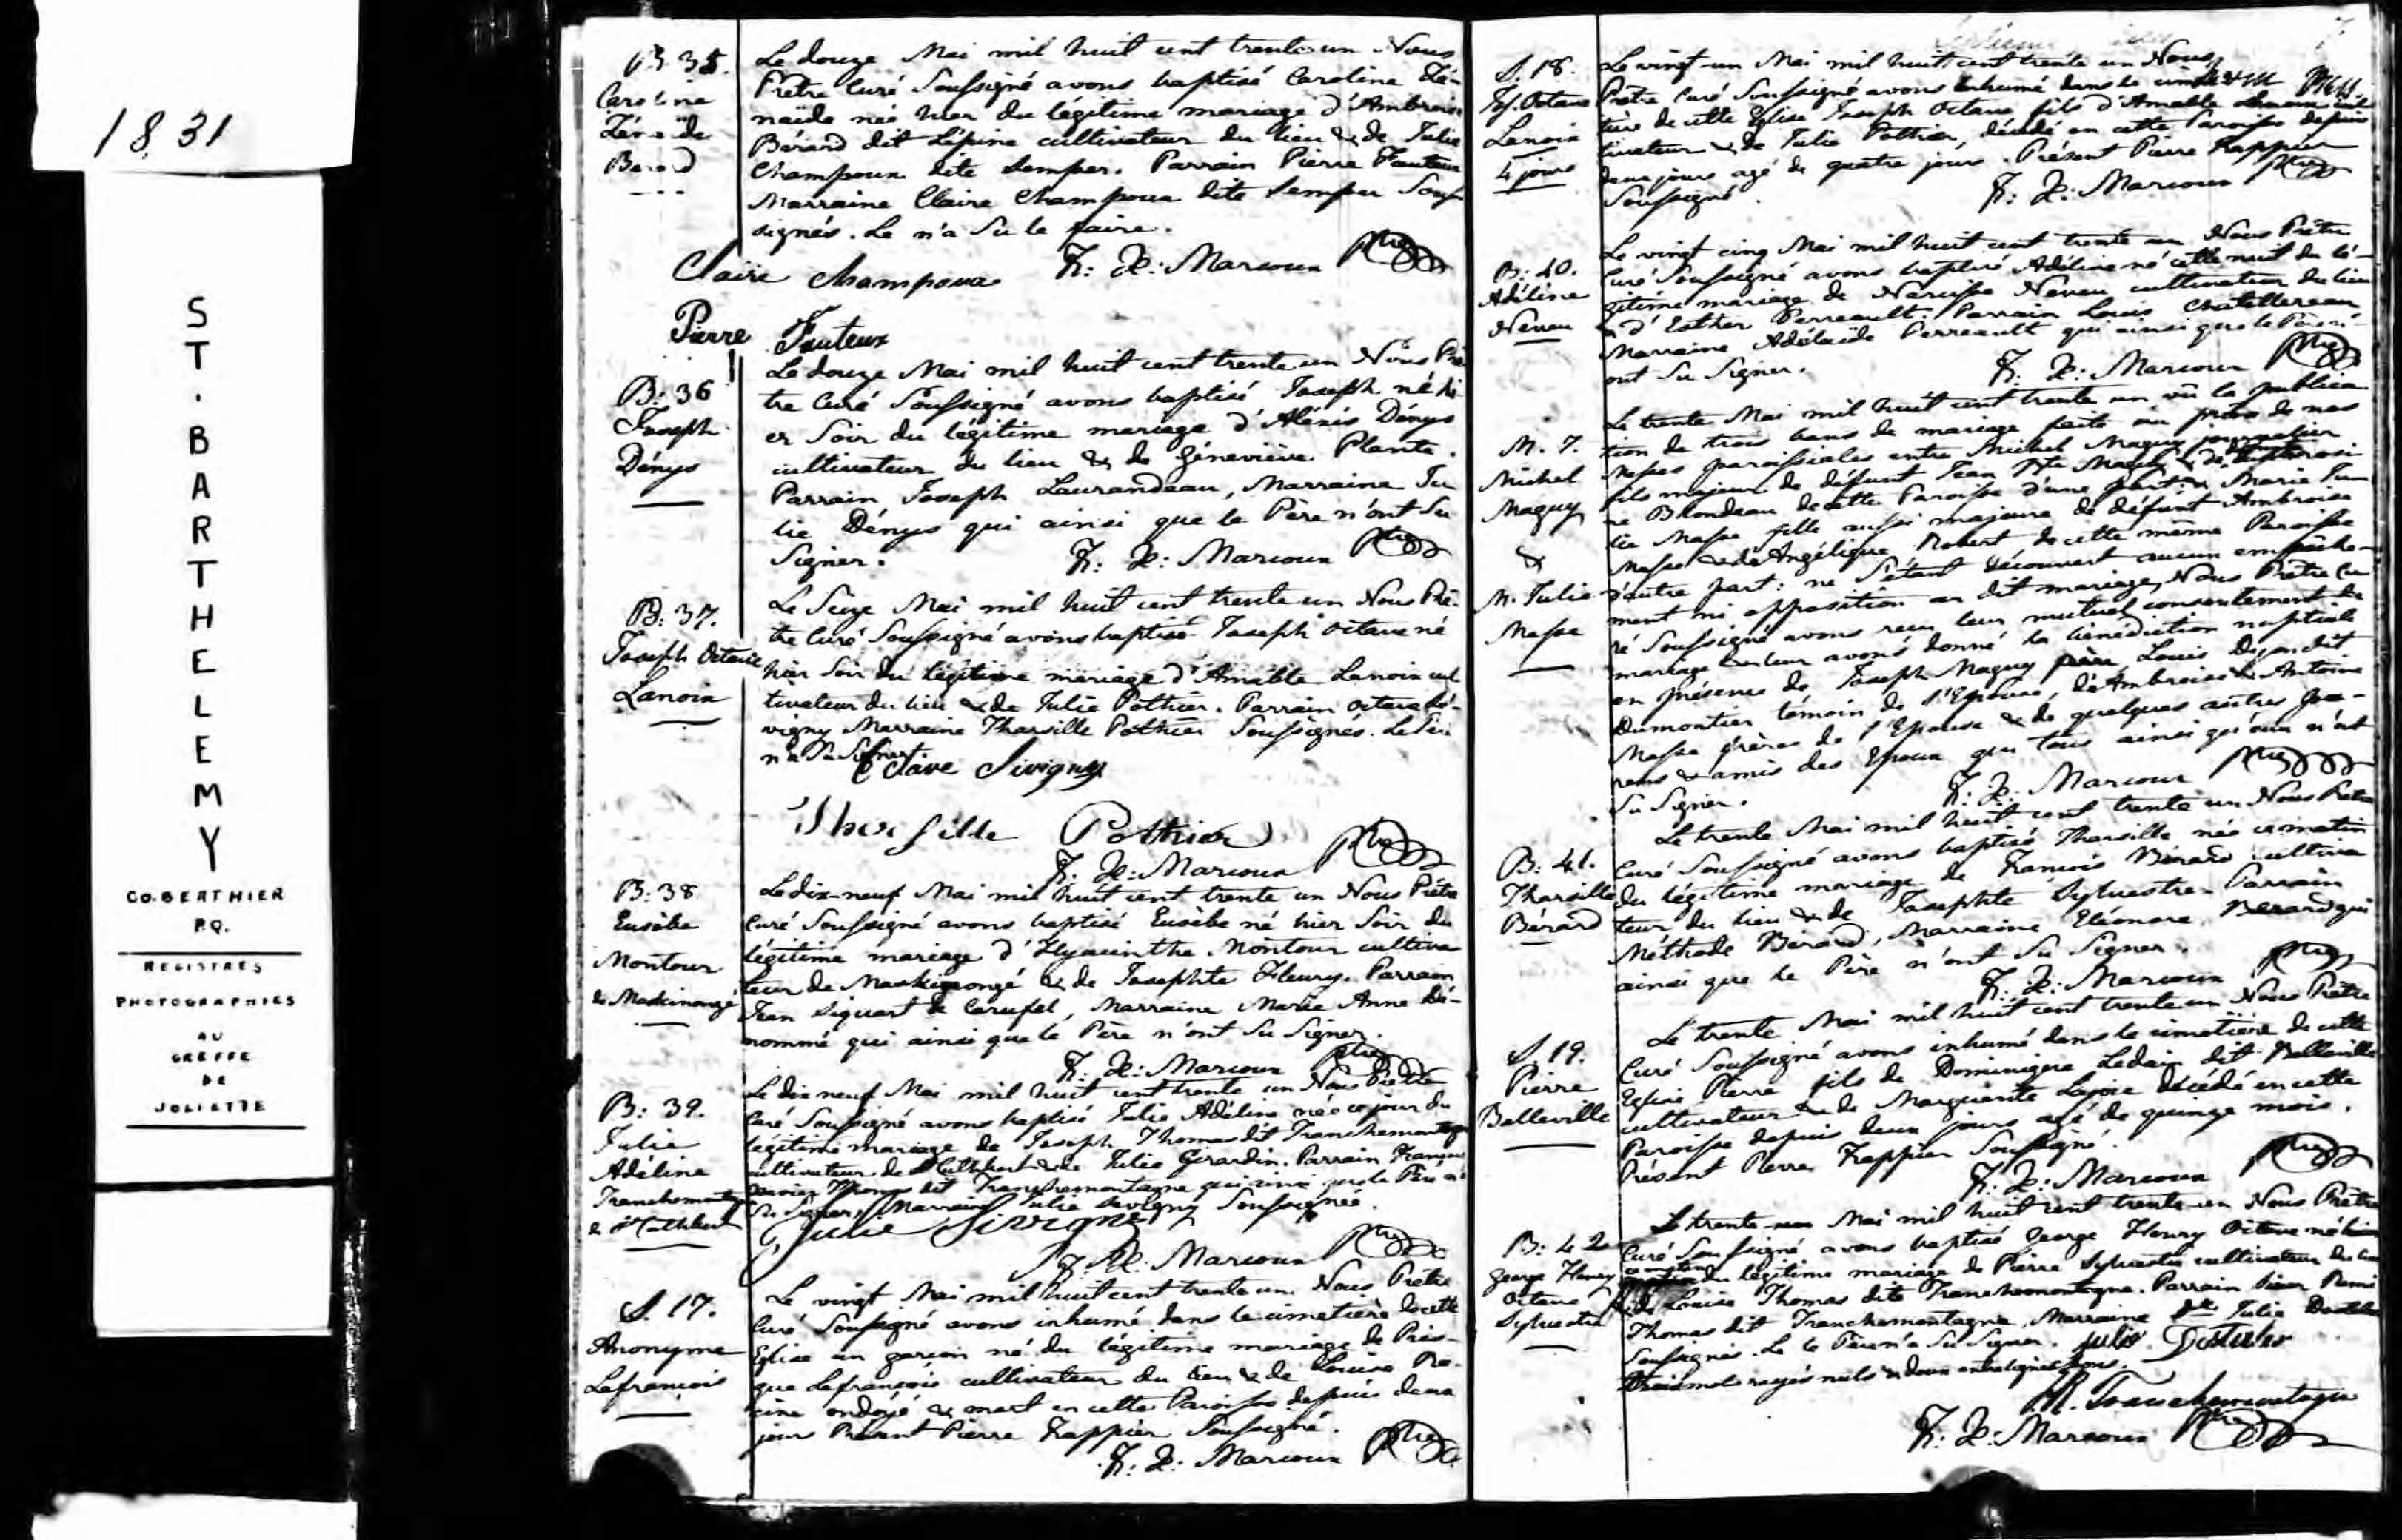 1831
ST. BARTHELEMY
CO. BERTHIER
P.Q.
REGISTRES
PHOTOGRAPHIES
AU
GREFFE
DE
JOLIETTE
B. 35.
Caroline
Zénaïde
Berard
Le douze Mai mil huit cent trente un Nous
Prêtre Curé Soussigné avons baptisé Caroline Zé-
naïde née hier du légitime mariage d'Ambroise
Bérard dit Lépine cultivateur du lieu & de Julie
Champoux dite Semper. Parrain Pierre Fauteux
Marraine Claire Champoux dite Semper Sous-
signés. Le n'a Su le faire.
Claire Champoux F: X: Marcoux Ptre
Pierre Fauteux
B: 36
Joseph
Dénys
Le douze Mai mil huit cent trente un Nous Prê-
tre Curé Soussigné avons baptisé Joseph né hi-
er Soir du légitime mariage d'Aléxis Dénys
cultivateur du lieu & de Géneviève Plante.
Parrain Joseph Laurandeau, Marraine Ju
lie Dénys qui ainsi que le Père n'ont Su
Signer. F: X: Marcoux Ptre
B: 37.
Joseph Octave
Lanoix
Le Seize Mai mil huit cent trente un Nous Prê-
tre Curé Soussigné avons baptisé Joseph Octave né
hier Soir du légitime mariage d'Amable Lanoix cul
tivateur du lieu & de Julie Pothier. Parrain Octave Sé-
vigny Marraine Tharsille Pothier Soussignés. Le Père
n'a Su Signer.
Octave Sivigny
Tharsille Pothier
F: X: Marcoux Ptre
B: 38
Eusèbe
Montour
de Maskinongé
Le dix-neuf Mai mil huit cent trente un Nous Prêtre
Curé Soussigné avons baptisé Eusèbe né hier Soir du
légitime mariage d'Hyacinthe Montour cultiva
teur de Maskinongé & de Josephte Fleury. Parrain
Jean Siquart de Carufel, Marraine Marie Anne Dé-
nommé qui ainsi que le Père n'ont Su Signer.
F: X: Marcoux Ptre
B: 39.
Julie
Adéline
Tranchemontagne
de St Cuthbert
Le dix neuf Mai mil huit cent trente un Nous Prêtre
Curé Soussigné avons baptisé Julie Adéline née ce jour du
légitime mariage de Joseph Thomas dit Tranchemontagne
cultivateur de St Cuthbert & de Julie Gerardin. Parrain François
Xavier Thomas dit Tranchemontagne qui ainsi que le Père n'a
Su Signer, Marraine Julie Sevigny Soussignée.
Julie Sivigny
F: X: Marcoux Ptre
S. 17.
Anonyme
Lafrancois
Le vingt Mai mil huit cent trente un Nous Prêtre
Curé Soussigné avons inhumé dans le cimetière de cette
Eglise un garcon né du légitime mariage de Pris-
que Lafrançois cultivateur du lieu & de Louise Ra-
cine ondoyé & mort en cette Paroisse depuis deux
jours Présent Pierre Frappier Soussigné.
F: X: Marcoux Ptre
7
S. 18.
Jos. Octave
Lanoix
4 jours
Le vingt-un Mai mil huit cent trente un Nous
Prêtre Curé Soussigné avons inhumé dans le cime
tière de cette Eglise Joseph Octave fils d'Amable Lanoix cul
tivateur & de Julie Pothier, décédé en cette Paroisse depuis
deux jours agé de quatre jours. Présent Pierre Frappier
Soussigné. F: X: Marcoux Ptre
B: 40.
Adéline
Neveu
Le vingt cinq Mai mil huit cent trente un Nous Prêtre
Curé Soussigné avons baptisé Adéline né cette nuit du lé-
gitime mariage de Narcisse Neveu cultivateur du lieu
& d'Esther Perreault. Parrain Louis Chatellereau
Marraine Adélaïde Perreault qui ainsi que le Père n'
ont Su Signer. F: X: Marcoux Ptre
M. 7.
Michel
Maguy
&
M. Julie
Masse
Le trente Mai mil huit cent trente un vû la publica
tion de trois bans de mariage faite au prône de nos
Messes paroissiales entre Michel Maguy journalier
fils majeur de défunt Jean Bte Maguy & de Euphrosi
ne Blondeau de cette Paroisse d'une part: & Marie Ju
lie Masse fille aussi majeure de défunt Ambroise
Masse & de Angélique Robert de cette même Paroisse
d'autre part: ne S'étant découvert aucun empêche-
ment ni opposition au dit mariage, Nous Prêtre Cu
ré Soussigné avons recu leur mutuel consentement de
mariage & leur avons donné la bénédiction nuptiale
en présence de Joseph Maguy père, Louis Dejan dit
Dumontier témoin de l'Epouse, d'Ambroise & Antoine
Masse frères de l'Epouse & de quelques autres pa-
rens & amis des Epoux qui tous ainsi qu'eux n'ont
Su Signer. F: X: Marcoux Ptre
B: 41.
Tharsille
Bérard
Le trente Mai mil huit cent trente un Nous Prêtre
Curé Soussigné avons baptisé Tharsille née ce matin
du légitime mariage de Francois Bérard cultiva
teur du lieu & de Josephte Sylvestre. Parrain
Méthode Bérard, Marraine Eléonore Berard qui
ainsi que le Père n'ont Su Signer.
F: X: Marcoux Ptre
S. 19.
Pierre
Belleville
Le trente Mai mil huit cent trente un Nous Prêtre
Curé Soussigné avons inhumé dans le cimetière de cette
Eglise Pierre fils de Dominique Ledain dit Belleville
cultivateur & de Marguerite Lajoie décédé en cette
Paroisse depuis deux jours agé de quinze mois.
Présent Pierre Frappier Soussigné.
F: X: Marcoux Ptre
B: 42
George Henry
Octave
Sylvestre
Le trente-un Mai mil huit cent trente un Nous Prêtre
Curé Soussigné avons baptisé George Henry Octave né
ce matin du légitime mariage de Pierre Sylvestre cultivateur du lieu
& de Louise Thomas dite Tranchemontagne. Parrain Sieur Remi
Thomas dit Tranchemontagne, Marraine Dlle Julie
Soussignés. Le Père n'a Su Signer. Julie
Trois mots rayés nuls & deux entrelignes bons.
R. Tranchemontagne
F: X: Marcoux Ptre